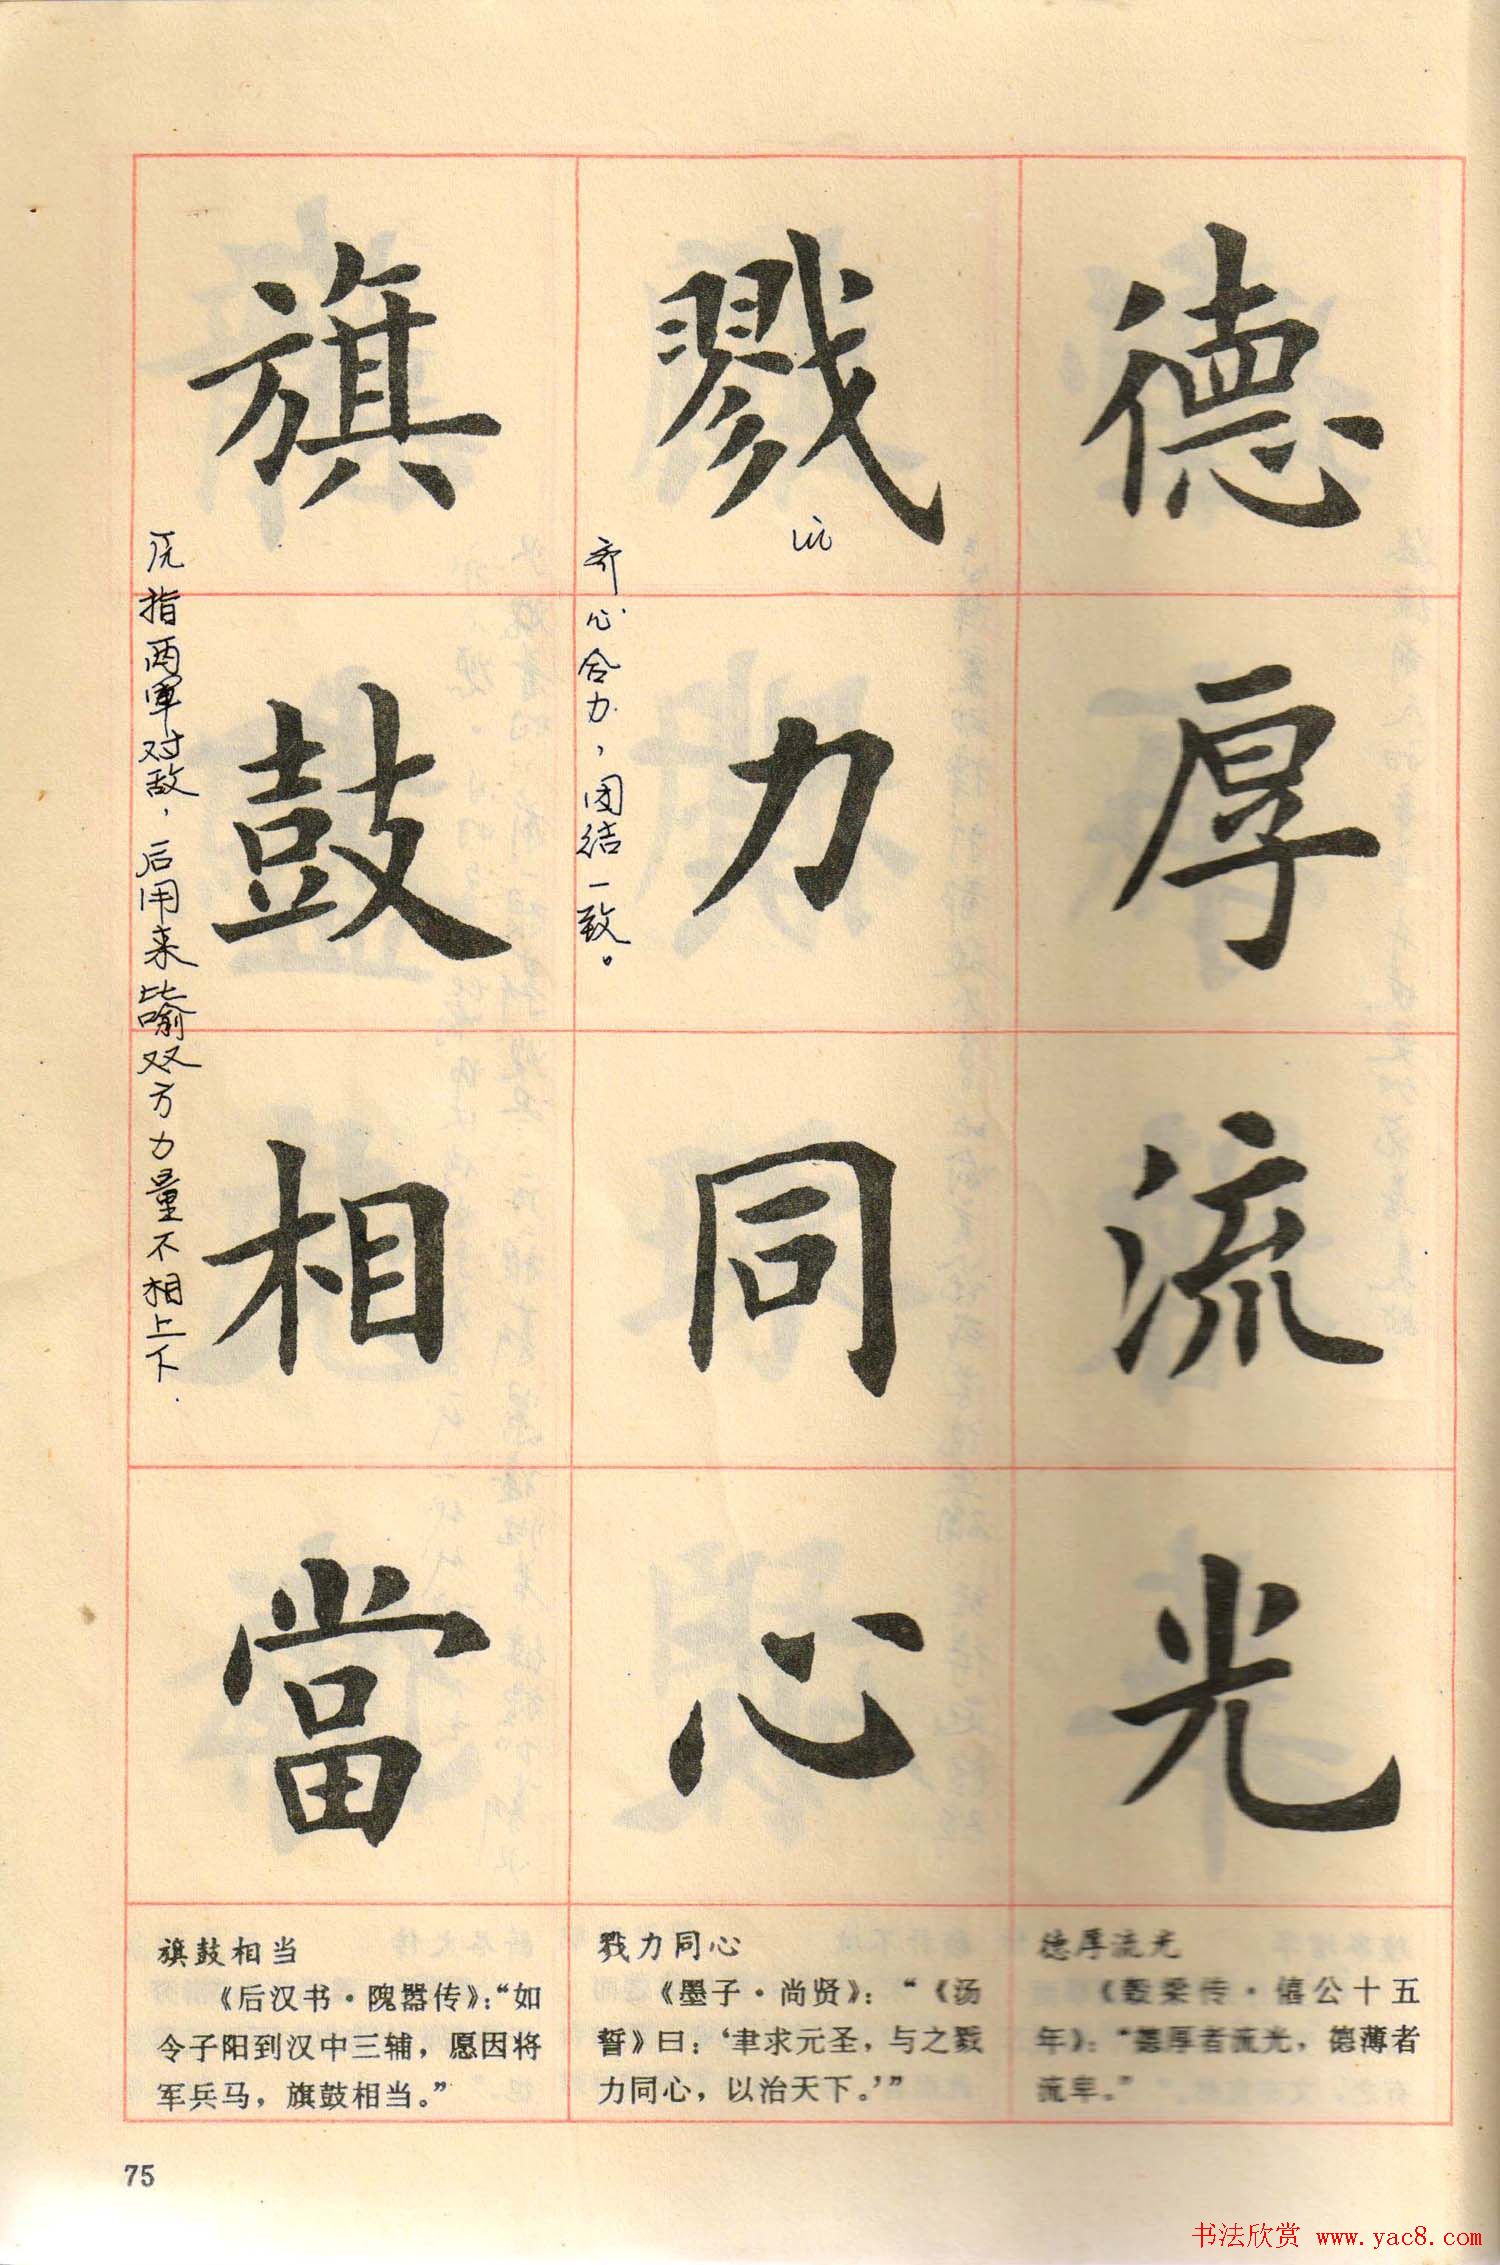 德厚流光
戮力同心
lù
齐心合力，团结一致。
旗鼓相當
原指两军对敌，后用来比喻双方力量不相上下.
德厚流光
《榖梁传·僖公十五
年》："德厚者流光，德薄者
流卑。"
戮力同心
《墨子·尚贤》："《汤
誓》曰：'聿求元圣，与之戮
力同心，以治天下。'"
旗鼓相当
《后汉书·隗嚣传》："如
令子阳到汉中三辅，愿因将
军兵马，旗鼓相当。"
75
书法欣赏 www.yac8.com